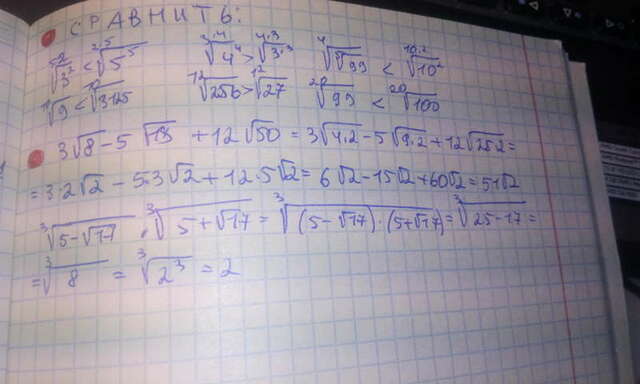 СРАВНИТЬ:
⁵·²√3² < ²·⁵√5⁵ ³·⁴√4⁴ > ⁴·³√3³ ⁴√⁵√99 < ¹⁰·²√10²
¹⁰√9 < ¹⁰√3125 ¹²√256 > ¹²√27 ²⁰√99 < ²⁰√100
3√8 - 5√18 + 12√50 = 3√4·2 - 5√9·2 + 12√25·2 =
= 3·2√2 - 5·3√2 + 12·5√2 = 6√2 - 15√2 + 60√2 = 51√2
³√5-√17 · ³√5+√17 = ³√(5-√17)·(5+√17) = ³√25-17 =
= ³√8 = ³√2³ = 2